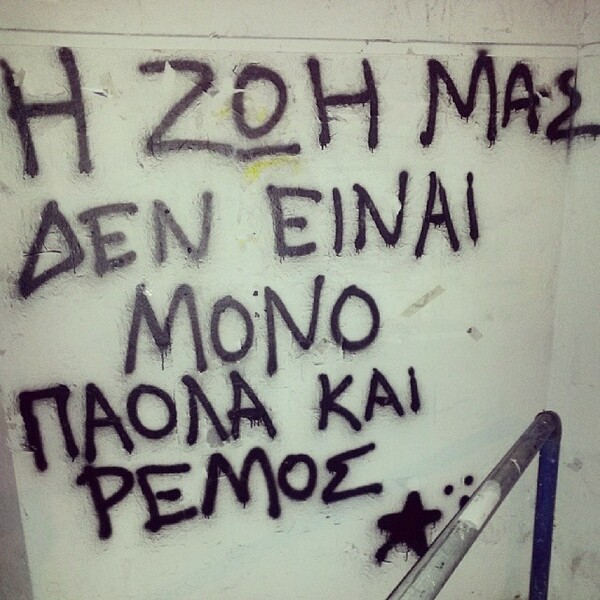 Η ΖΩΗ ΜΑΣ
ΔΕΝ ΕΙΝΑΙ
ΜΟΝΟ
ΠΑΟΛΑ ΚΑΙ
ΡΕΜΟΣ